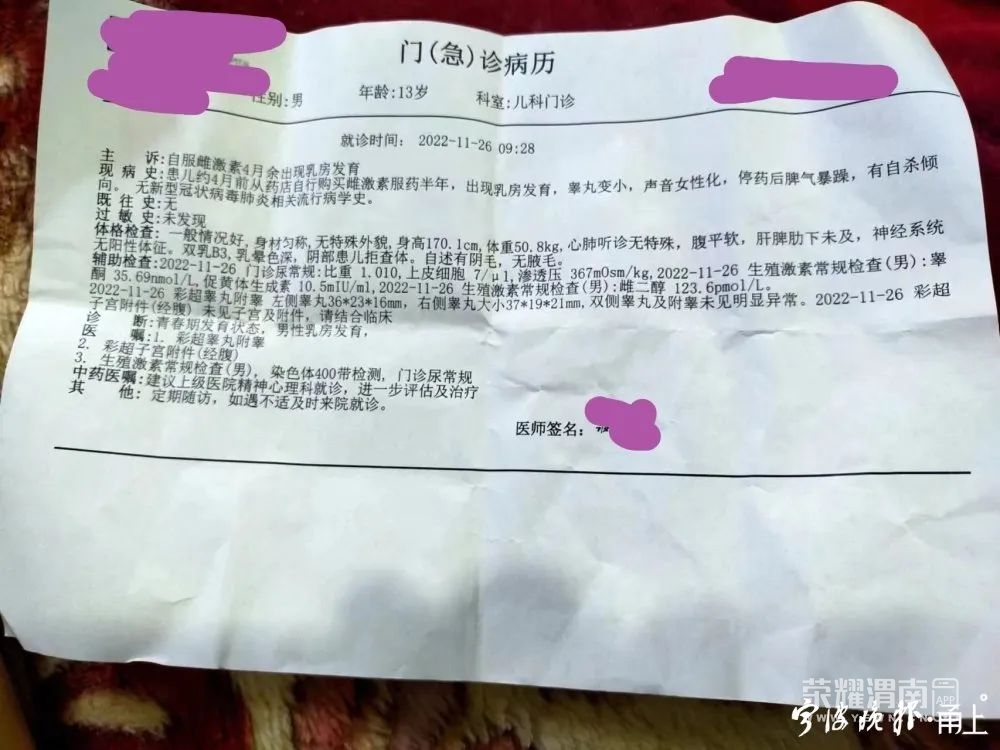 门(急)诊病历
性别:男 年龄:13岁 科室:儿科门诊
就诊时间: 2022-11-26 09:28
主 诉:自服雌激素4月余出现乳房发育
现 病 史:患儿约4月前从药店自行购买雌激素服药半年，出现乳房发育，睾丸变小，声音女性化，停药后脾气暴躁，有自杀倾
向。 无新型冠状病毒肺炎相关流行病学史。
既 往 史:无
过 敏 史:未发现
体格检查: 一般情况好, 身材匀称, 无特殊外貌, 身高170.1cm, 体重50.8kg, 心肺听诊无特殊, 腹平软, 肝脾肋下未及, 神经系统
无阳性体征。双乳B3, 乳晕色深, 阴部患儿拒查体。自述有阴毛, 无腋毛。
辅助检查:2022-11-26 门诊尿常规:比重 1.010, 上皮细胞 7/μl, 渗透压 367mOsm/kg, 2022-11-26 生殖激素常规检查(男):睾
酮 35.69nmol/L, 促黄体生成素 10.5mIU/ml, 2022-11-26 生殖激素常规检查(男):雌二醇 123.6pmol/L。
2022-11-26 彩超睾丸附睾 左侧睾丸36*23*16mm, 右侧睾丸大小37*19*21mm, 双侧睾丸及附睾未见明显异常。2022-11-26 彩超
子宫附件(经腹) 未见子宫及附件, 请结合临床
诊 断:青春期发育状态, 男性乳房发育,
医 嘱:1. 彩超睾丸附睾
2. 彩超子宫附件(经腹)
3. 生殖激素常规检查(男), 染色体400带检测, 门诊尿常规
中药医嘱:建议上级医院精神心理科就诊, 进一步评估及治疗
其 他: 定期随访, 如遇不适及时来院就诊。
医师签名:
荣耀渭南 APP
宁波晚报 甬上